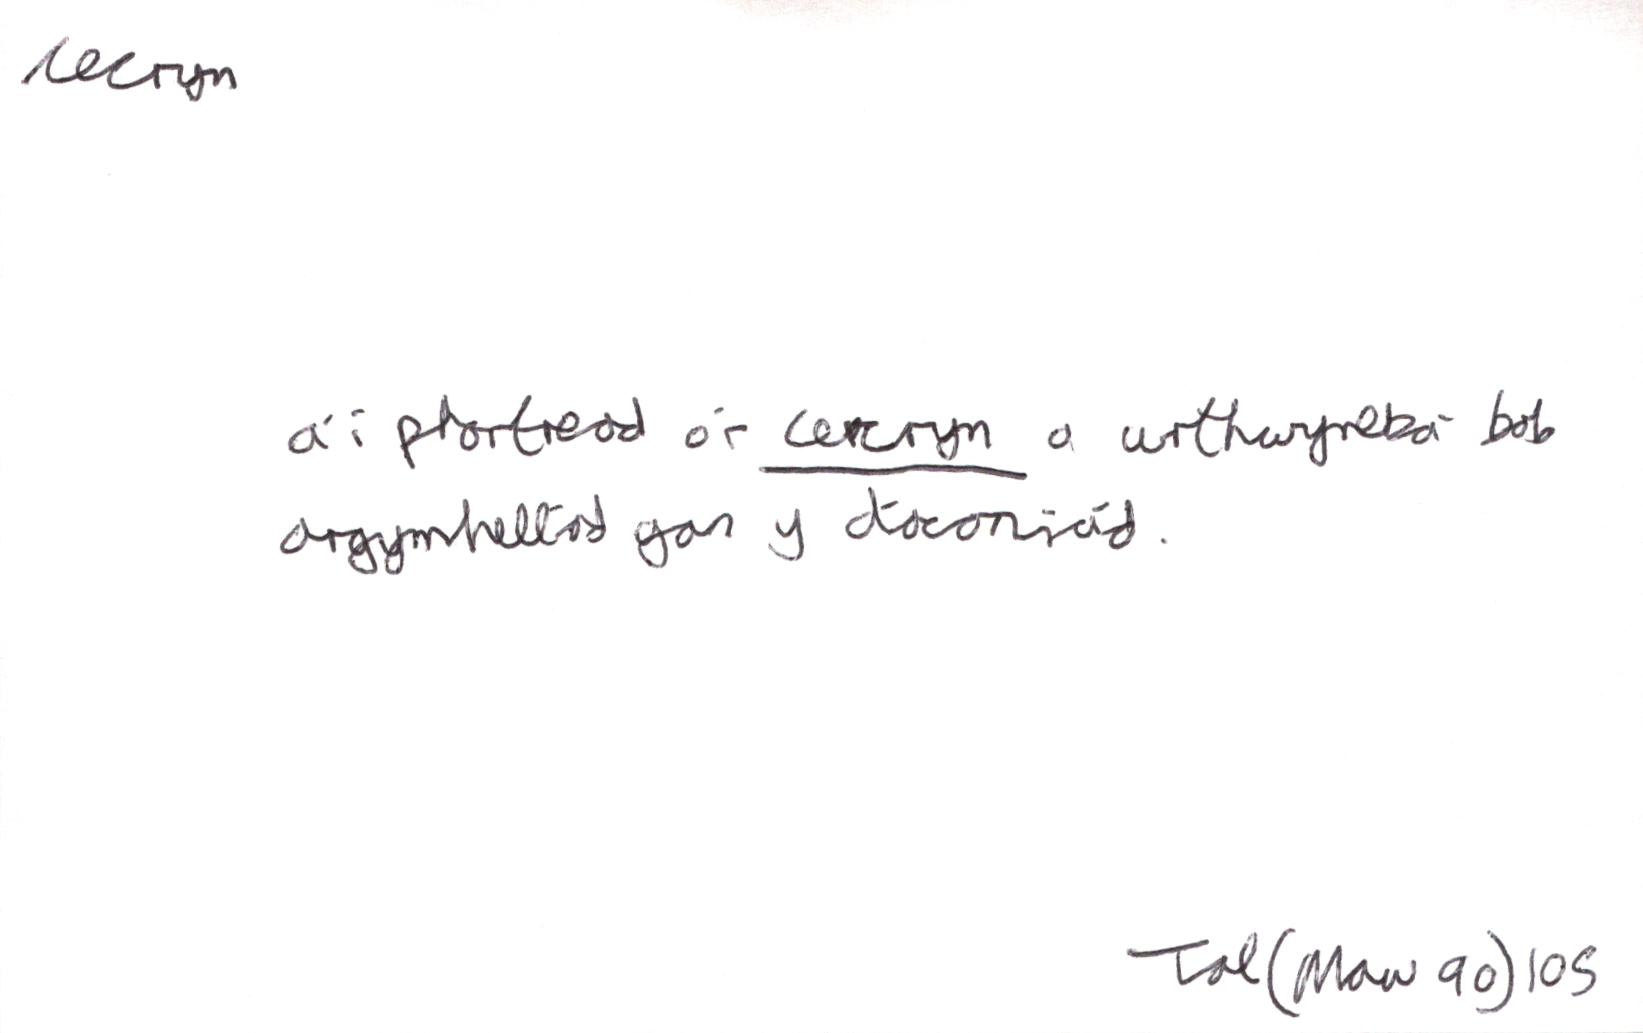 cecryn
a'i phortread o'r cecryn a wrthwyneba bob
argymhelliad gan y diaconiaid.
Tal (Maw 90) 105